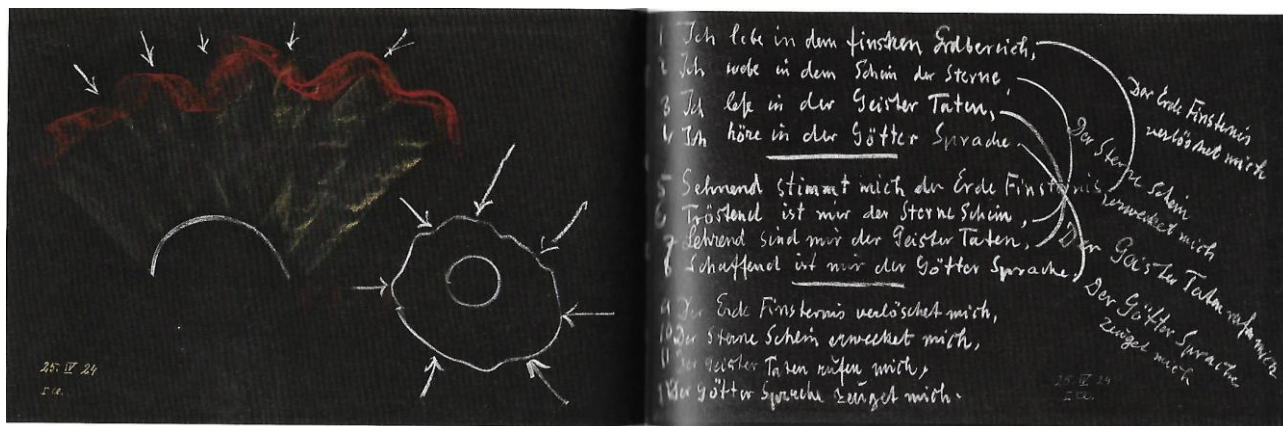 25. IV 24
I. Cl.
1 Ich lebe in dem finstren Erdbereich,
2 Ich webe in dem Schein der Sterne,
3 Ich lese in der Geister Taten,
4 Ich höre in der Götter Sprache.
5 Sehnend stimmt mich der Erde Finsternis
6 Tröstend ist mir der Sterne Schein,
7 Lehrend sind mir der Geister Taten,
8 Schaffend ist mir der Götter Sprache.
9 Der Erde Finsternis verlöschet mich,
10 Der Sterne Schein erwecket mich,
11 Der Geister Taten rufen mich,
12 Der Götter Sprache zeuget mich.
Der Erde Finsternis
verlöschet mich
Der Sterne Schein
erwecket mich
Der Geister Taten rufen mich
Der Götter Sprache
zeuget mich
25. IV 24
I. Cl.